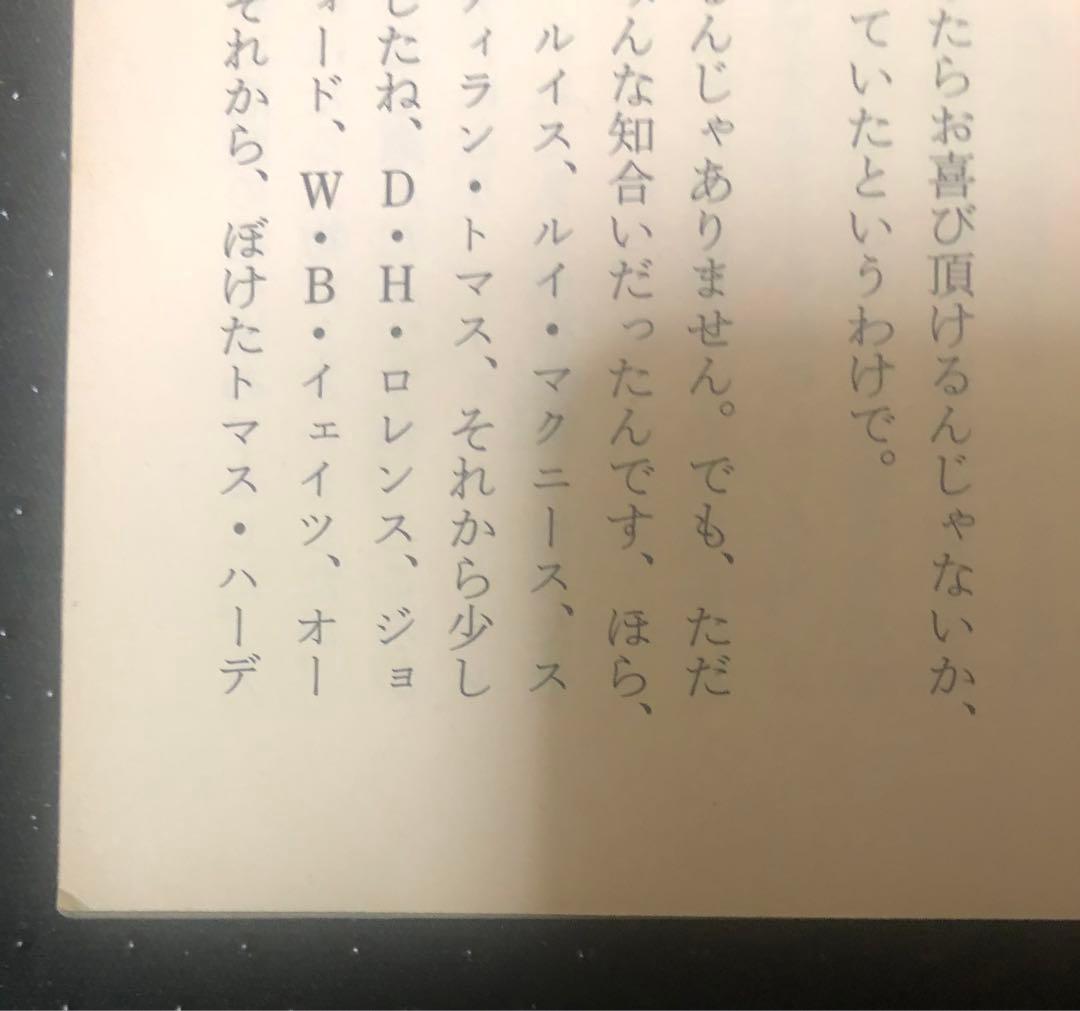 たらお喜び頂けるんじゃないか、
ていたというわけで。
んじゃありません。でも、ただ
んな知合いだったんです、ほら、
ルイス、ルイ・マクニース、ス
ィラン・トマス、それから少し
したね、D・H・ロレンス、ジョ
ォード、W・B・イェイツ、オー
それから、ぼけたトマス・ハーデ